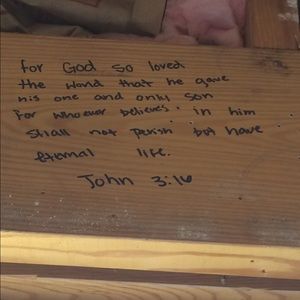 for God so loved
the World that he gave
his one and only son
for whoever believes in him
shall not perish but have
eternal life.
John 3:16